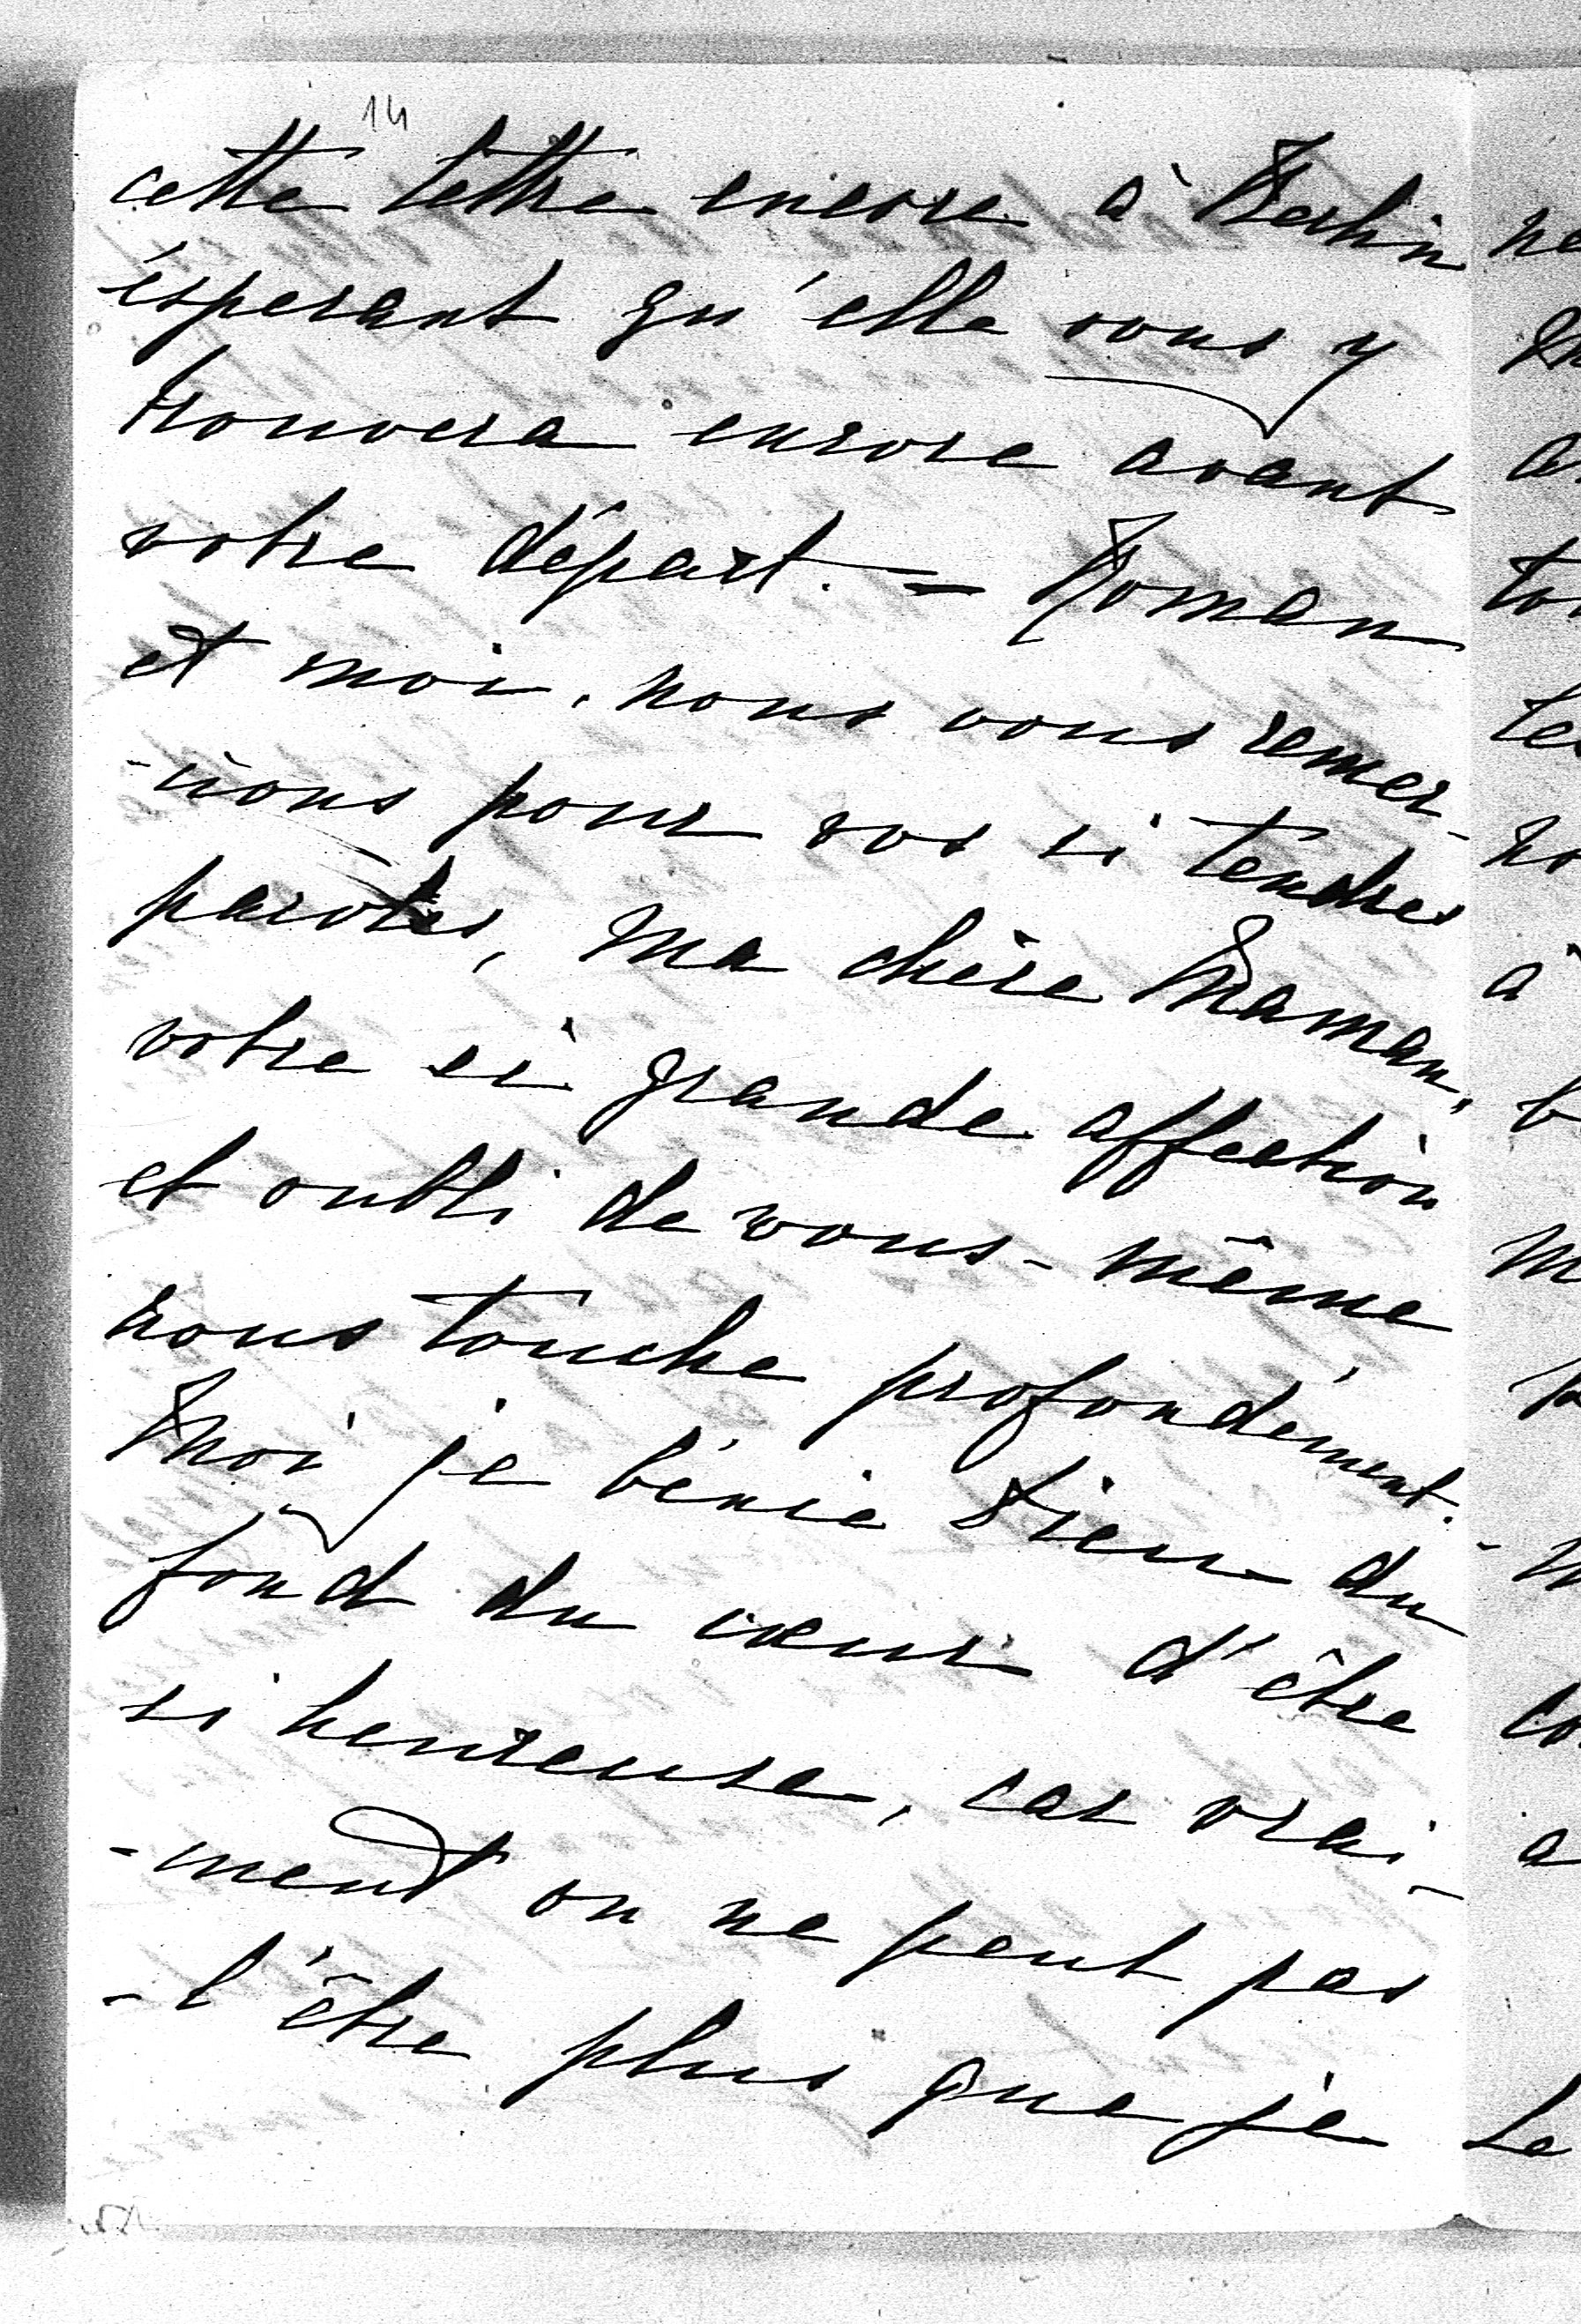 14
cette lettre encore à Berlin
ésperant qu'elle vous y
trouvera encore avant
votre départ. — Roman
et moi, nous vous remer-
-cions pour vos si tendres
paroles, ma chère Maman,
votre si grande affection
et oubli de vous-même
nous touche profondément.
Moi je bénie Dieu du
fond du cœur d'être
si heureuse, car vrai-
-ment on ne peut pas
-l'être plus que je